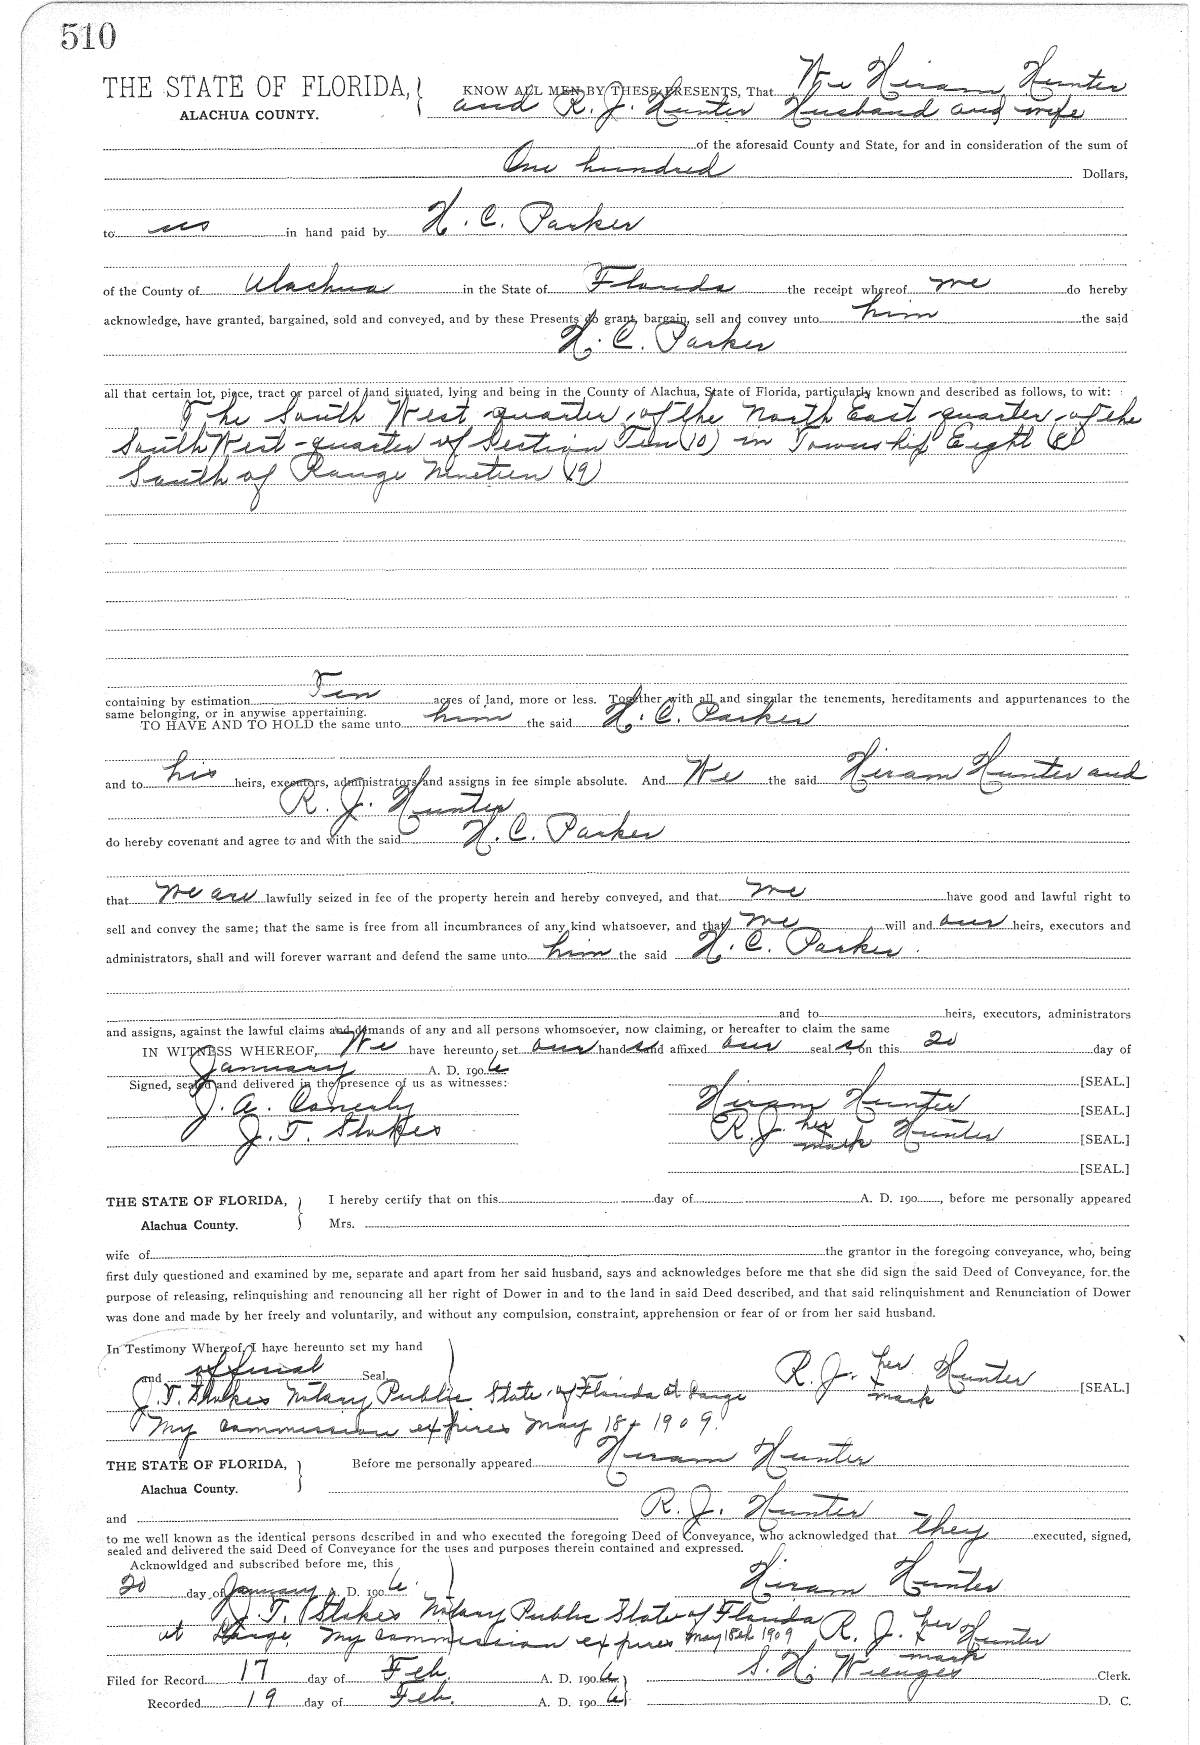 510
THE STATE OF FLORIDA, KNOW ALL MEN BY THESE PRESENTS, That We Hiram Hunter
ALACHUA COUNTY. and R. J. Hunter Husband and wife
of the aforesaid County and State, for and in consideration of the sum of
One hundred Dollars,
to us in hand paid by H. C. Parker
of the County of Alachua in the State of Florida the receipt whereof we do hereby
acknowledge, have granted, bargained, sold and conveyed, and by these Presents do grant, bargain, sell and convey unto him the said
H. C. Parker
all that certain lot, piece, tract or parcel of land situated, lying and being in the County of Alachua, State of Florida, particularly known and described as follows, to wit:
The South West quarter of the North East quarter of the
South West quarter of Section Ten (10) in Township Eight (8)
South of Range Nineteen (19)
containing by estimation Ten acres of land, more or less. Together with all and singular the tenements, hereditaments and appurtenances to the
same belonging, or in anywise appertaining.
TO HAVE AND TO HOLD the same unto him the said H. C. Parker
and to his heirs, executors, administrators and assigns in fee simple absolute. And We the said Hiram Hunter and
R. J. Hunter
do hereby covenant and agree to and with the said H. C. Parker
that we are lawfully seized in fee of the property herein and hereby conveyed, and that we have good and lawful right to
sell and convey the same; that the same is free from all incumbrances of any kind whatsoever, and that we will and our heirs, executors and
administrators, shall and will forever warrant and defend the same unto him the said H. C. Parker.
and to heirs, executors, administrators
and assigns, against the lawful claims and demands of any and all persons whomsoever, now claiming, or hereafter to claim the same
IN WITNESS WHEREOF, We have hereunto set our hands and affixed our seals on this 20 day of
January A. D. 1906
Signed, sealed and delivered in the presence of us as witnesses: [SEAL.]
J. A. Conerly Hiram Hunter [SEAL.]
J. T. Stokes R. J. her x mark Hunter [SEAL.]
[SEAL.]
THE STATE OF FLORIDA, I hereby certify that on this day of A. D. 190 , before me personally appeared
Alachua County. Mrs.
wife of the grantor in the foregoing conveyance, who, being
first duly questioned and examined by me, separate and apart from her said husband, says and acknowledges before me that she did sign the said Deed of Conveyance, for the
purpose of releasing, relinquishing and renouncing all her right of Dower in and to the land in said Deed described, and that said relinquishment and Renunciation of Dower
was done and made by her freely and voluntarily, and without any compulsion, constraint, apprehension or fear of or from her said husband.
In Testimony Whereof, I have hereunto set my hand
and official Seal R. J. her x mark Hunter [SEAL.]
J. T. Stokes Notary Public State of Florida at Large
My commission expires May 18th 1909.
THE STATE OF FLORIDA, Before me personally appeared Hiram Hunter
Alachua County.
and R. J. Hunter
to me well known as the identical persons described in and who executed the foregoing Deed of Conveyance, who acknowledged that they executed, signed,
sealed and delivered the said Deed of Conveyance for the uses and purposes therein contained and expressed.
Acknowldged and subscribed before me, this
20 day of January A. D. 1906. Hiram Hunter
J. T. Stokes Notary Public State of Florida R. J. her x mark Hunter
at Large. My commission expires May 18th 1909
Filed for Record 17 day of Feb. A. D. 1906 S. H. Wienges Clerk.
Recorded 19 day of Feb. A. D. 1906 D. C.